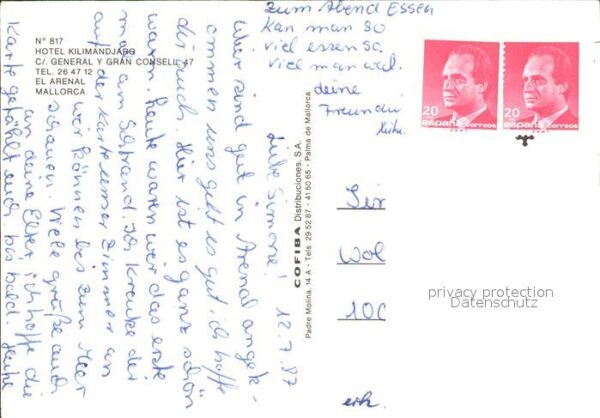 Nº 817
HOTEL KILIMANDJARO
C/. GENERAL Y GRAN CONSELL, 47
TEL. 26 47 12
EL ARENAL
MALLORCA
12.7.87
Liebe Simone!
Wir sind gut in Arenal angek-
ommen uns geht es gut ich hoffe
dir auch. Hier ist es ganz schön
warm. heute waren wir das erste
mal am Strand. Ich kreuze dir
auf der Karte unser Zimmer an
wir können bis zum Meer
schauen. Viele grüße auch
an deine Elter, ich hoffe die
Karte gefählt euch bis bald. Heute
zum Abend ESSEN
kan man so
viel essen so.
viel man wil.
deine
Freundin
COFIBA Distribuciones, S.A.
Padre Molina, 14 A - Tels. 29 52 87 - 41 50 65 - Palma de Mallorca
20
españa correos
20
españa correos
Wol
100
privacy protection
Datenschutz